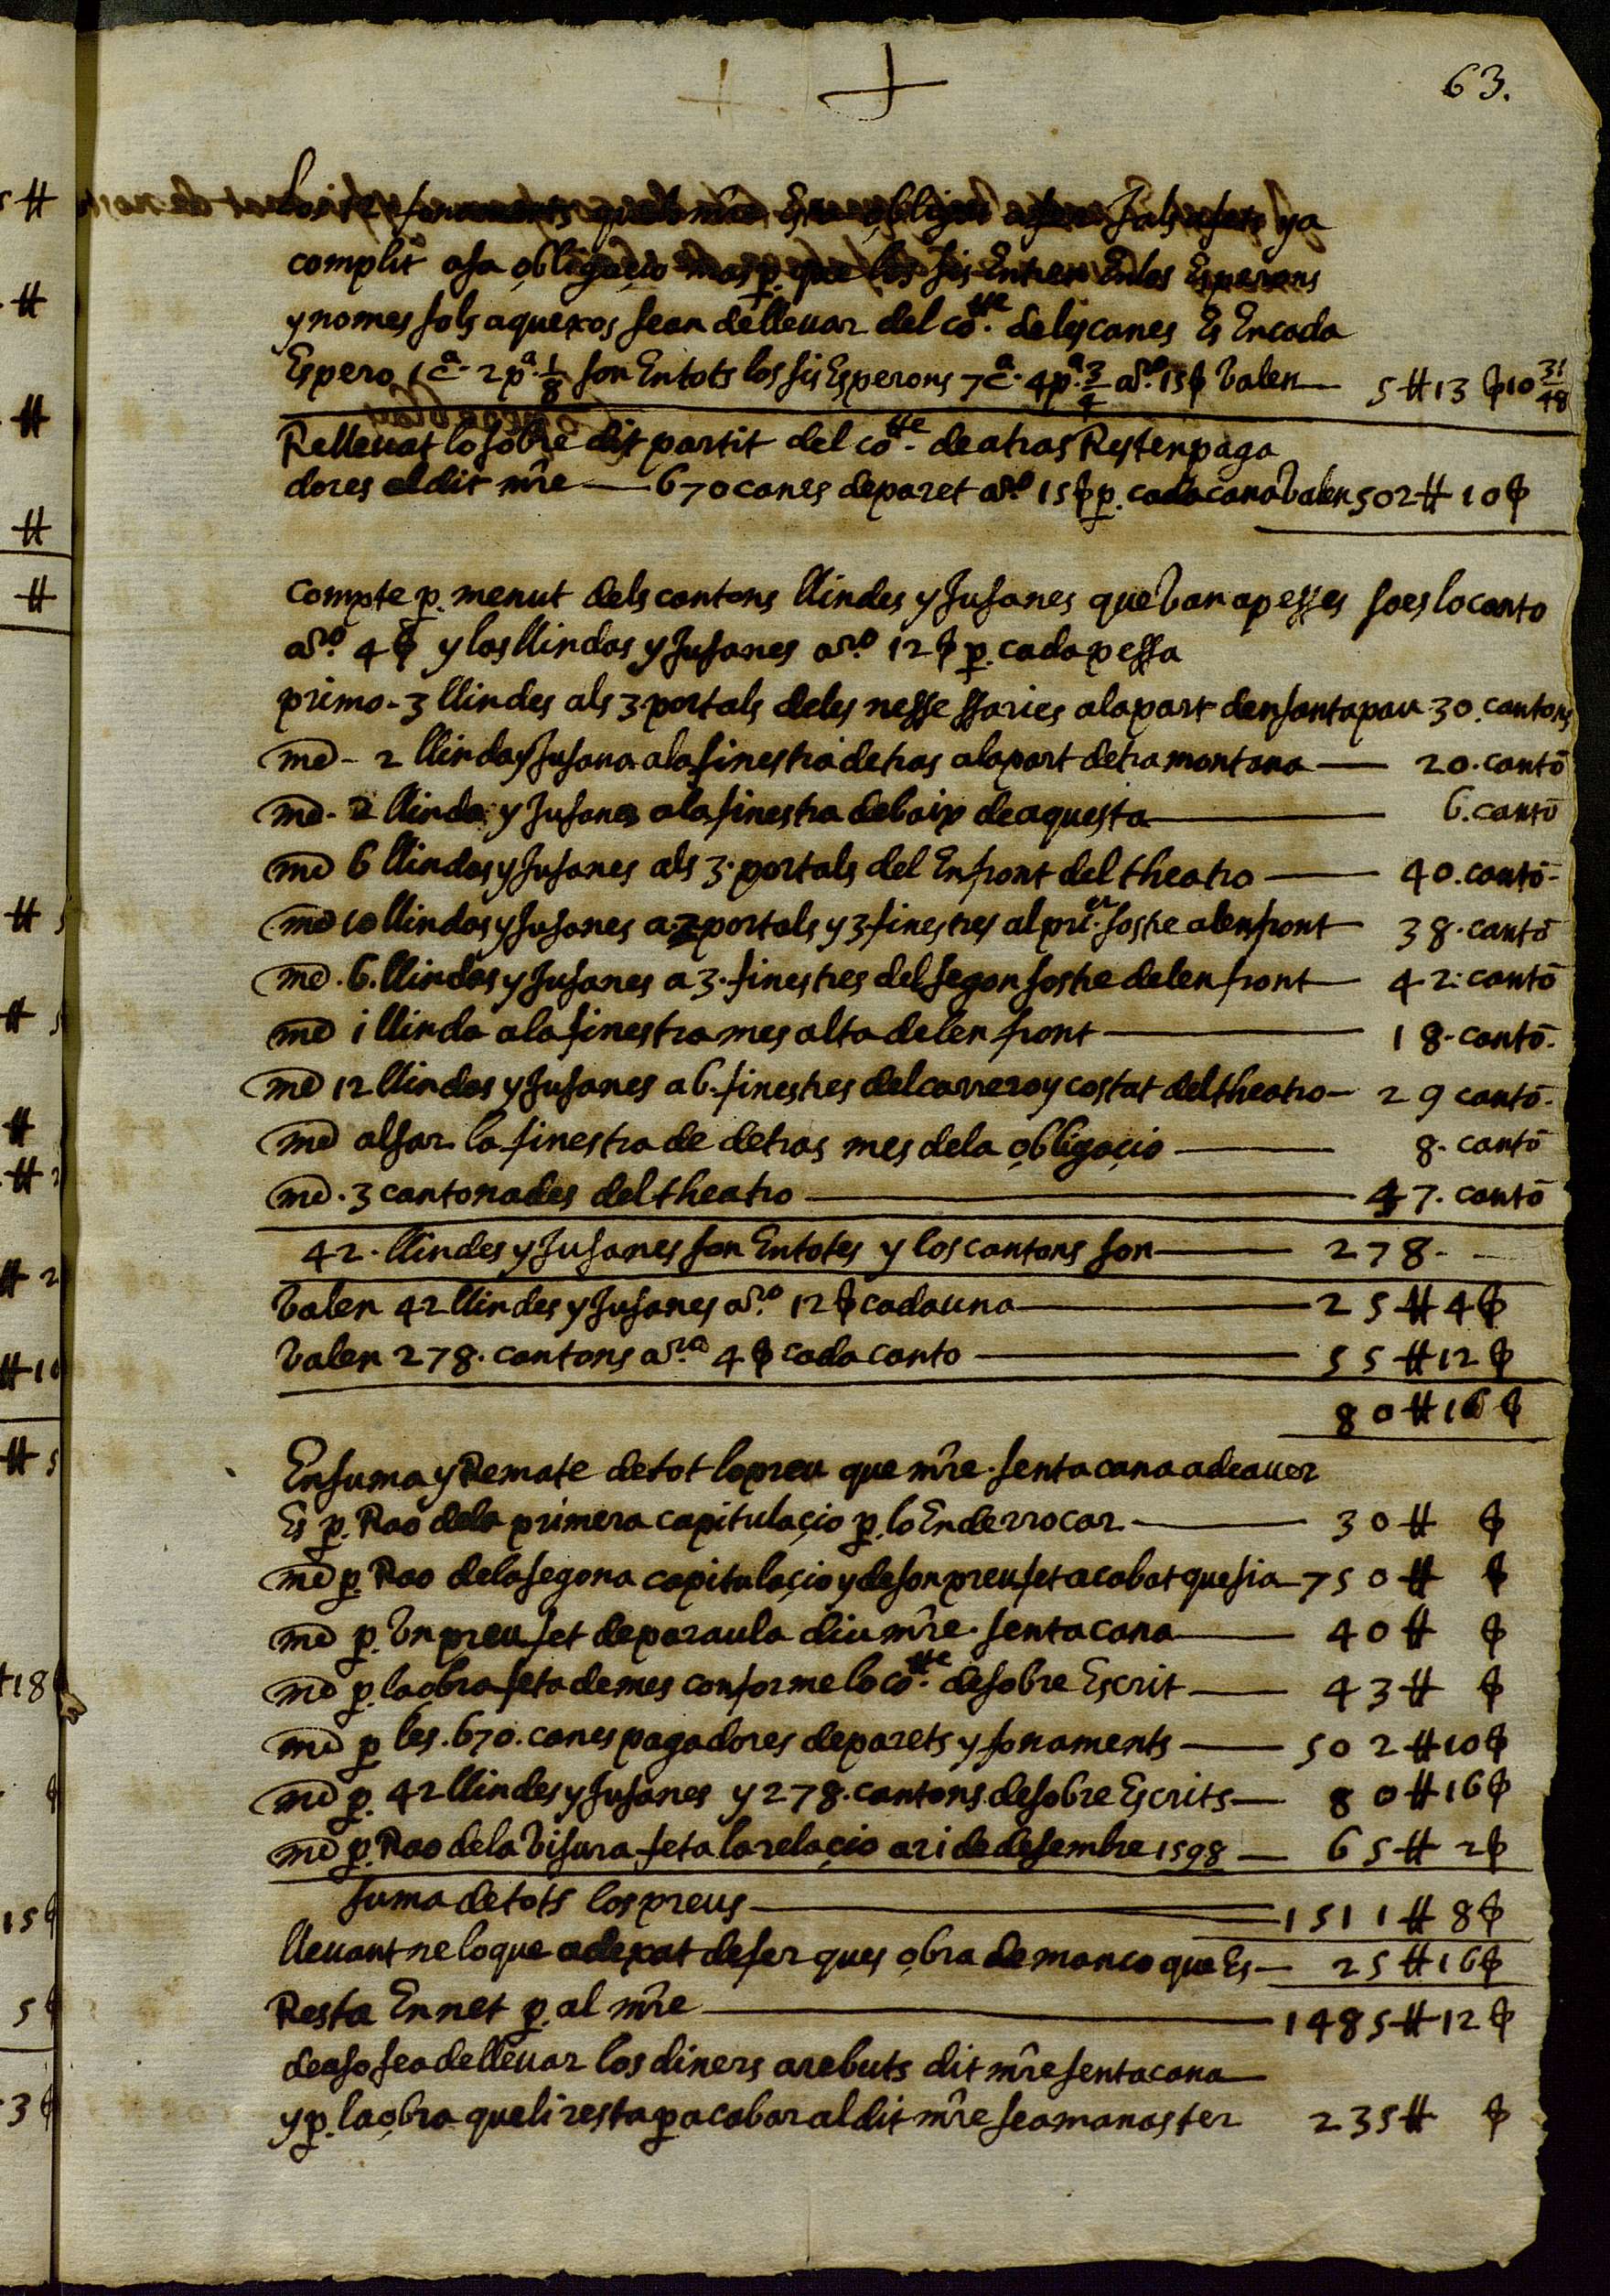 63.
los 12 fonaments quel mre sere obligat afer Jals afets ya
complit asa obligacio mes p. que los sis Entren Enlos Esperons
y nomes sols aquexos sean dellevar del co.tte deles canes Es Encada
Espero 1 ca. 2 pa. 1/8 son Entots los sis Esperons 7 ca. 4 pa. 3/4 aro. 15 ꞩ valen 5 ⧺ 13 ꞩ 10 31/48
Rellevat lo sobre dit partit del co.tte de atras Resten paga
dores al dit mre 670 canes deparet aro 15 ꞩ p. cada cana valen 502 ⧺ 10 ꞩ
compte p. menut dels cantons llindes y Jusanes que van apesses soes lo canto
aro. 4 ꞩ y las llindas y Jusanes aro 12 ꞩ p. cada pessa
primo - 3 llindes als 3 portals deles nessessaries ala part den santapau 30. cantons
mo - 2 llinda y Jusana ala finestra detras ala part detramontana 20. canto
mo - 2 llinda y Jusanes ala finestra debaix de aquesta 6. canto
mo 6 llindas y Jusanes als 3. portals del Enfront del theatro 40. canto
mo 10 llindas y Jusanes a 2 portals y 3 finestres al pri.er sostre alenfront 38. canto
mo. 6. llindas y Jusanes a 3. finestres del segon sostre delenfront 42. canto
mo 1 llinda ala finestra mes alta delenfront 18. canto.
mo 12 llindas y Jusanes a 6. finestres del carrero y costat del theatro 29 canto.
mo alsar la finestra de detras mes dela obligacio 8. canto
mo. 3 cantonades del theatro 47. canto
42. llindes y Jusanes son Entotes y los cantons son 278.
valen 42 llindes y Jusanes aro. 12 ꞩ cadauna 25 ⧺ 4 ꞩ
valen 278. cantons aro. 4 ꞩ cada canto 55 ⧺ 12 ꞩ
80 ⧺ 16 ꞩ
Ensuma y Remate de tot lo preu que mre. sentacana adeaver
Es p. Rao dela primera capitulacio p. lo Enderrocar 30 ⧺ ꞩ
mo p. Rao dela segona capitulacio y de son preu fet acabat que sia 750 ⧺ ꞩ
mo p. un preu fet deparaula diu mre. sentacana 40 ⧺ ꞩ
mo p. la obra feta demes conforme lo co.tte desobre Escrit 43 ⧺ ꞩ
mo p les. 670. canes pagadores deparets y fonaments 502 ⧺ 10 ꞩ
mo p. 42 llindes y Jusanes y 278. cantons desobre Escrits 80 ⧺ 16 ꞩ
mo p. Rao dela visura feta la relacio a ri de desembre 1598 65 ⧺ 2 ꞩ
suma detots los preus 1511 ⧺ 8 ꞩ
llevantne lo que adexat defer ques obra de manco que Es 25 ⧺ 16 ꞩ
Resta En net p. al mre 1485 ⧺ 12 ꞩ
de aso sea dellevar los diners arebuts dit mre sentacana
y p. la obra que li resta p acabar al dit mre sea manaster 235 ⧺ ꞩ